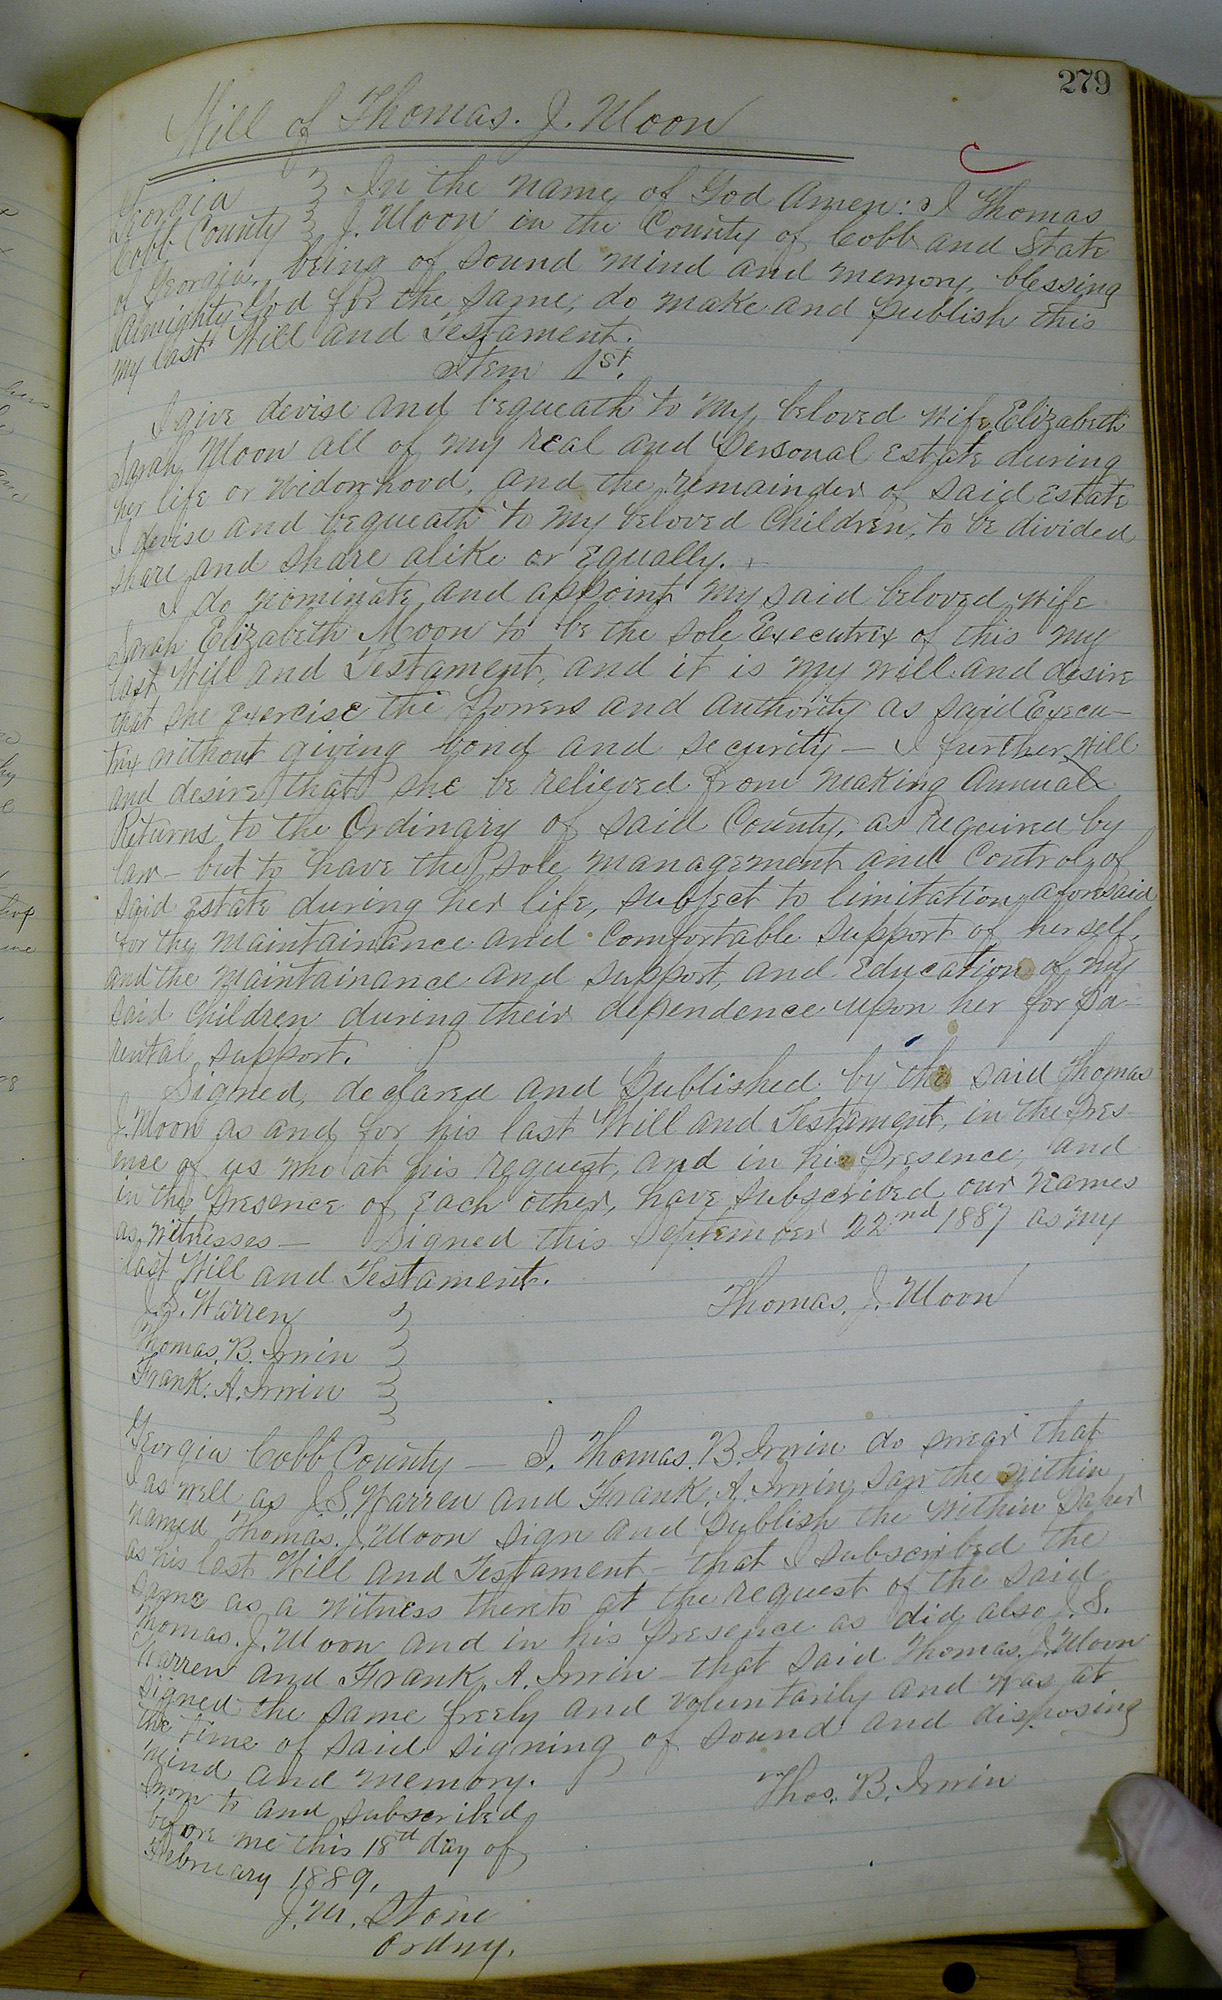 279
Will of Thomas. J. Moon
Georgia } In the name of God Amen: I Thomas
Cobb County } J. Moon in the County of Cobb and State
of Georgia, being of sound mind and memory, blessing
Almighty God for the same, do make and publish this
my last Will and Testament.
Item 1st.
I give devise and bequeath to my beloved wife Elizabeth
Sarah Moon all of my real and personal estate during
her life or widowhood, and the remainder of said estate
I devise and bequeath to my beloved children, to be divided
share and share alike or equally.
I do nominate and appoint my said beloved wife
Sarah Elizabeth Moon to be the sole Executrix of this my
last Will and Testament, and it is my will and desire
that she exercise the powers and authority as said Execu-
trix without giving bond and security - I further will
and desire that she be relieved from making Annual
Returns to the Ordinary of said County, as required by
law - but to have the sole management and control of
said estate during her life, subject to limitation aforesaid
for the maintainance and comfortable support of herself,
and the maintainance and support, and Education of my
said children during their dependence upon her for pa-
rental support.
Signed, declared and published by the said Thomas
J. Moon as and for his last Will and Testament, in the pres-
ence of us who at his request, and in his presence, and
in the presence of each other, have subscribed our names
as witnesses - Signed this September 22nd 1887 as my
last Will and Testament.
Thomas. J. Moon
J. S. Warren }
Thomas. B. Irwin }
Frank. A. Irwin }
Georgia Cobb County - I, Thomas. B. Irwin do swear that
I as well as J. S. Warren and Frank. A. Irwin, saw the within
named Thomas. J. Moon sign and publish the within paper
as his last Will and Testament - that I subscribed the
same as a witness thereto at the request of the said
Thomas. J. Moon and in his presence as did also J. S.
Warren and Frank. A. Irwin - that said Thomas. J. Moon
signed the same freely and voluntarily and was at
the time of said signing of sound and disposing
mind and memory.
Thos. B. Irwin
Sworn to and subscribed
before me this 18th day of
February 1889.
J. M. Stone
Ordny.